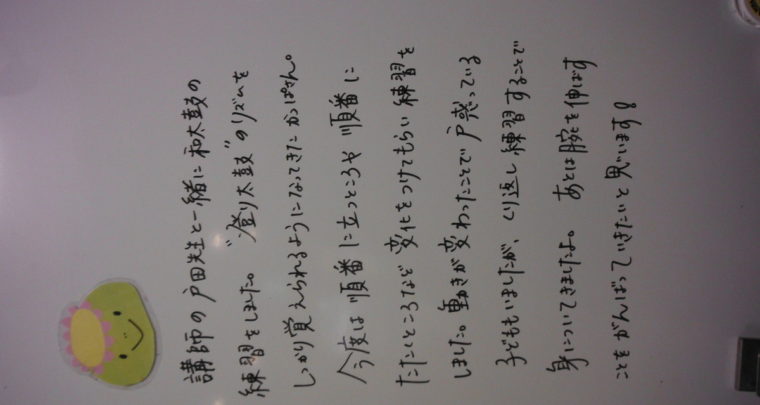 講師の戸田先生と一緒に和太鼓の
練習をしました。"登り太鼓"のリズムを
しっかり覚えられるようになってきたかっぱさん。
今度は順番に立つところや順番に
たたくところなど変化をつけてもらい練習を
しました。動きが変わったことで戸惑っている
子どももいましたが、くり返し練習することで
身についてきましたよ。あとは腕を伸ばす
ことをがんばっていきたいと思います。